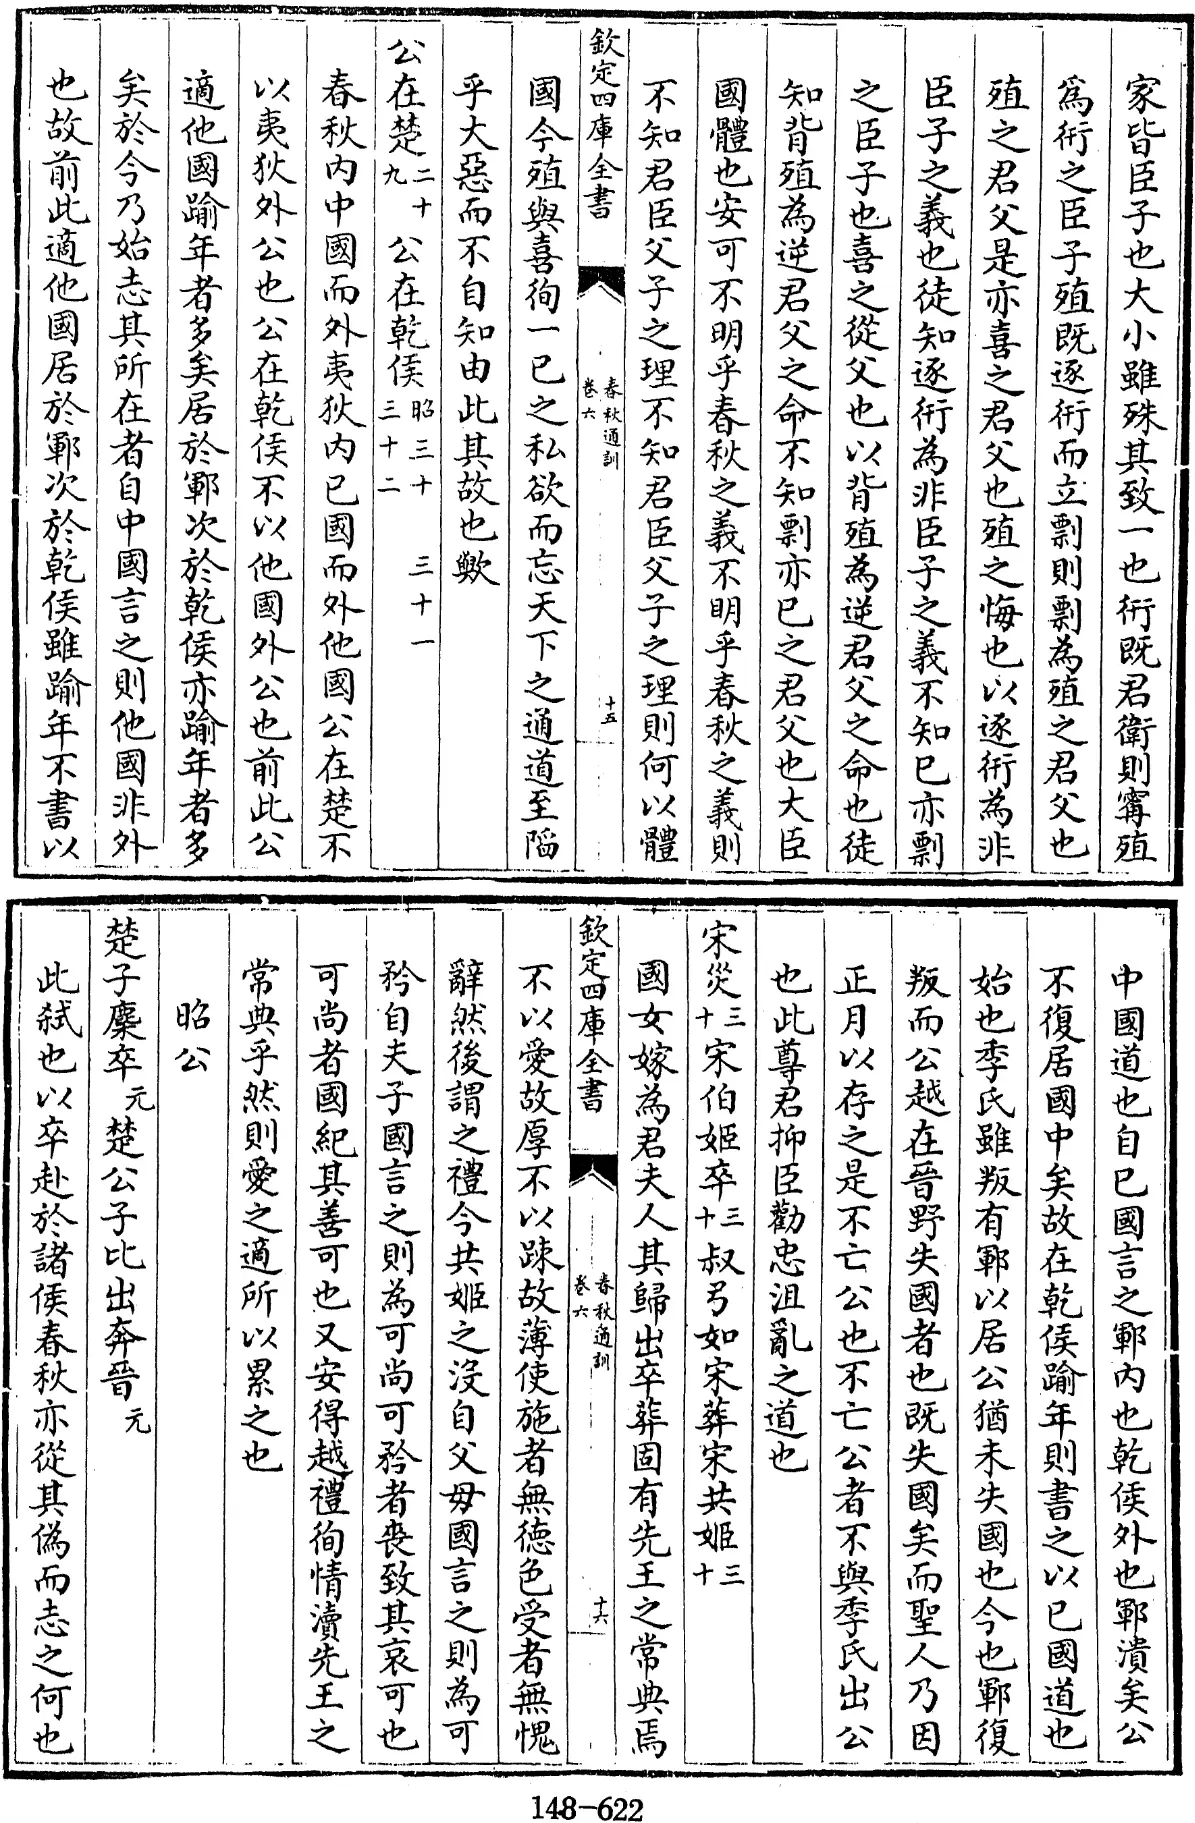 家皆臣子也大小雖殊其致一也衎既君衛則寗殖
爲衎之臣子殖既逐衎而立剽則剽為殖之君父也
殖之君父是亦喜之君父也殖之悔也以逐衎為非
臣子之義也徒知逐衎為非臣子之義不知已亦剽
之臣子也喜之從父也以背殖為逆君父之命也徒
知背殖為逆君父之命不知剽亦已之君父也大臣
國體也安可不明乎春秋之義不明乎春秋之義則
不知君臣父子之理不知君臣父子之理則何以體
欽定四庫全書 春秋通訓 卷六 十五
國今殖與喜徇一已之私欲而忘天下之通道至陷
乎大惡而不自知由此其故也歟
公在楚二十九 公在乾侯昭三十 三十一 三十二
春秋内中國而外夷狄内已國而外他國公在楚不
以夷狄外公也公在乾侯不以他國外公也前此公
適他國踰年者多矣居於鄆次於乾侯亦踰年者多
矣於今乃始志其所在者自中國言之則他國非外
也故前此適他國居於鄆次於乾侯雖踰年不書以
中國道也自已國言之鄆内也乾侯外也鄆潰矣公
不復居國中矣故在乾侯踰年則書之以已國道也
始也季氏雖叛有鄆以居公猶未失國也今也鄆復
叛而公越在晉野失國者也既失國矣而聖人乃因
正月以存之是不亡公也不亡公者不與季氏出公
也此尊君抑臣勸忠沮亂之道也
宋災三十宋伯姬卒三十叔弓如宋葬宋共姬三十
國女嫁為君夫人其歸出卒葬固有先王之常典焉
欽定四庫全書 春秋通訓 卷六 十六
不以愛故厚不以踈故薄使施者無德色受者無愧
辭然後謂之禮今共姬之沒自父毋國言之則為可
矜自夫子國言之則為可尚可矜者喪致其哀可也
可尚者國紀其善可也又安得越禮徇情瀆先王之
常典乎然則愛之適所以累之也
昭公
楚子麇卒元 楚公子比出奔晉元
此弑也以卒赴於諸侯春秋亦從其偽而志之何也
148-622